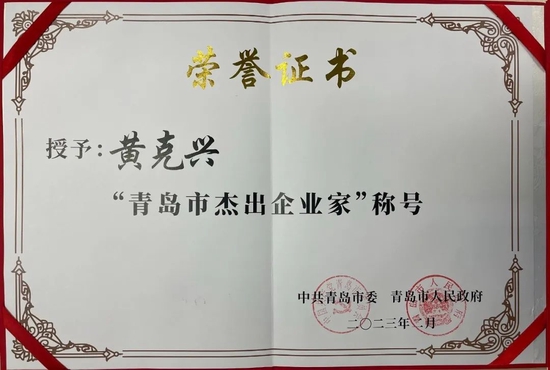 荣誉证书
授予：黄克兴
“青岛市杰出企业家”称号
中共青岛市委 青岛市人民政府
二〇二三年 月